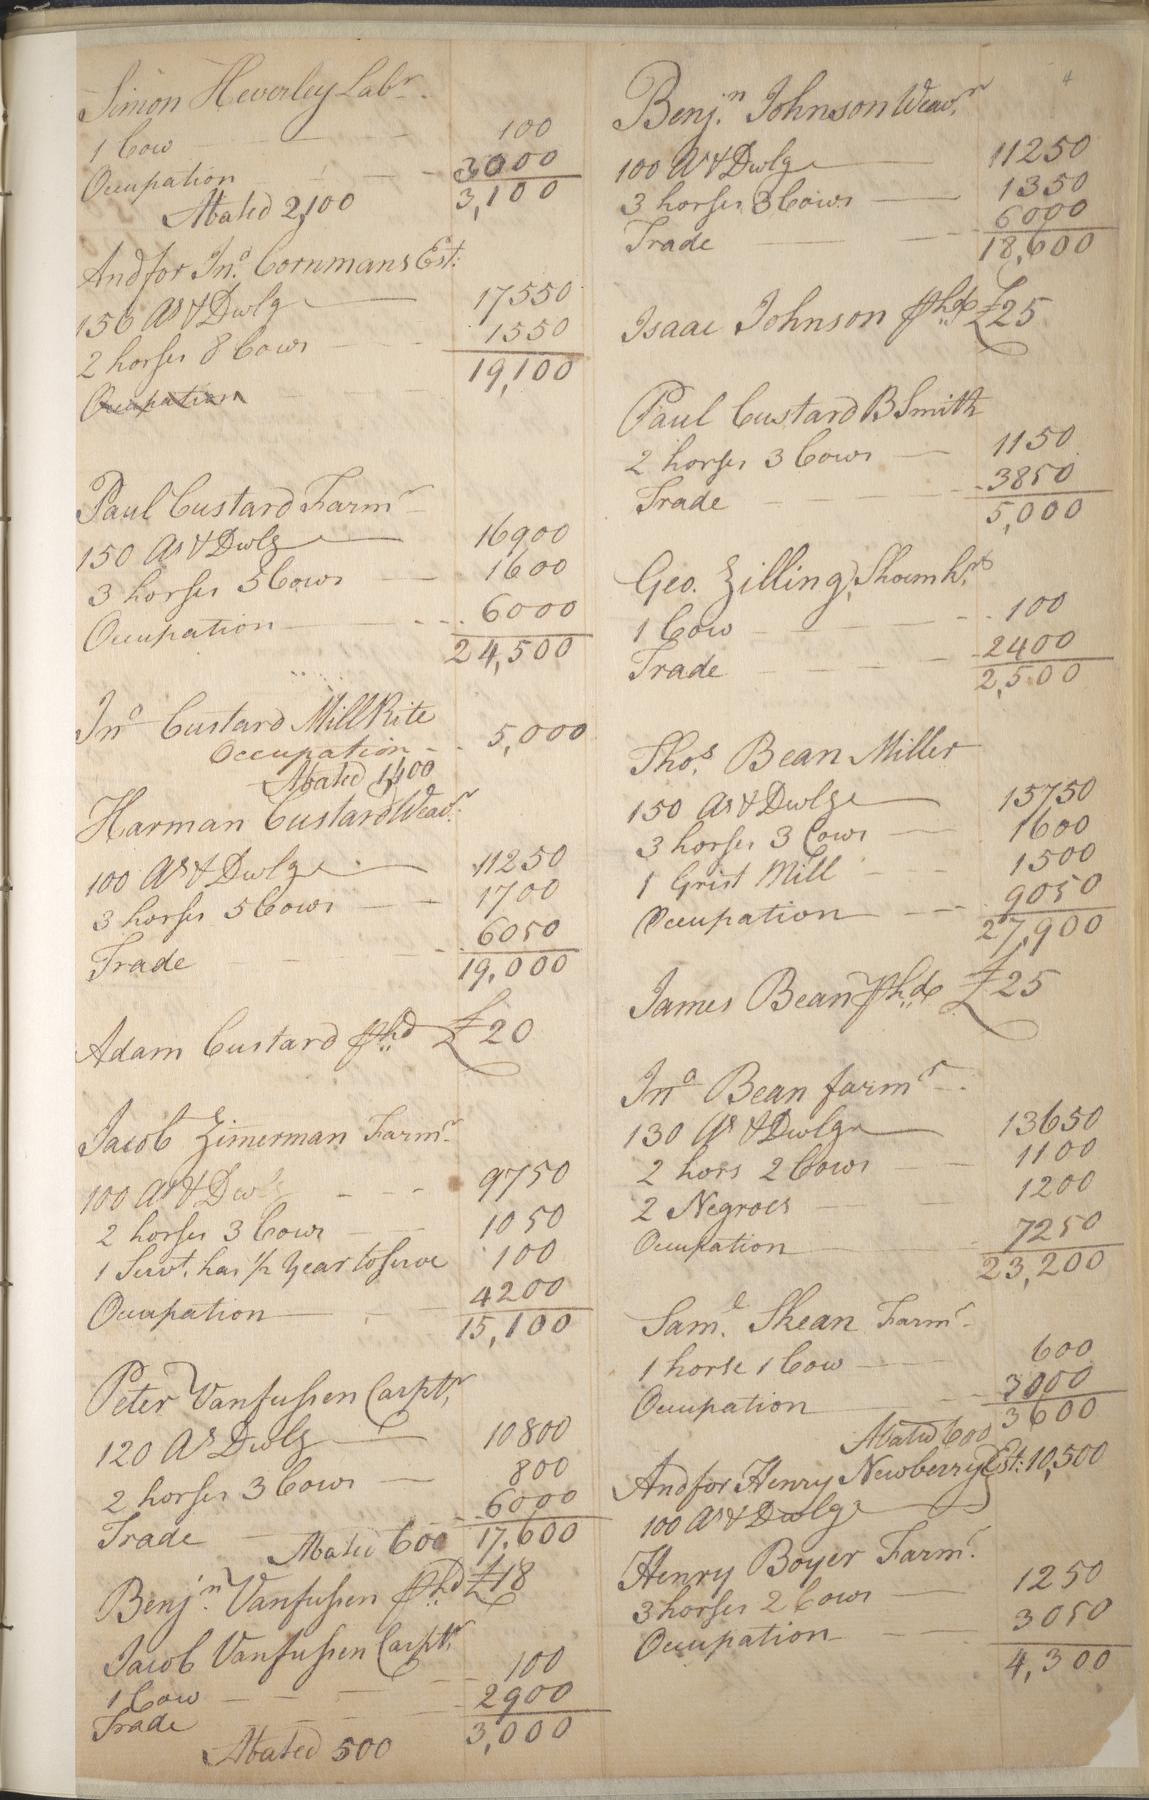 Simon Heverley Labr.
1 Cow 100
Occupation 3000
3,100
Abated 2,100
And for Jno. Cornmans Est:
156 As & Dwlg 17550
2 horses 8 Cows 1550
19,100
Occupation
Paul Custard Farmr
150 As & Dwlg 16900
3 horses 5 Cows 1600
Occupation 6000
24,500
Jno Custard Mill Rite
Occupation 5,000
Abated 1,400
Harman Custard Weavr.
100 As & Dwlg 11250
3 horses 5 Cows 1700
Trade 6050
19,000
Adam Custard pr hd £20
Jacob Zimerman Farmr.
100 As & Dwlg 9750
2 horses 3 Cows 1050
1 Servt. has 1/2 Year to serve 100
Occupation 4200
15,100
Peter Vanfussen Carptr,
120 As Dwlg 10800
2 horses 3 Cows 800
Trade 6000
Abated 600 17,600
Benjn. Vanfussen pr hd £18
Jacob Vanfussen Carptr
1 Cow 100
Trade 2900
3,000
Abated 500
4
Benjn. Johnson Weavr
100 As & Dwlg 11250
3 horses 3 Cows 1350
Trade 6000
18,600
Isaac Johnson pr hd £25
Paul Custard B Smith
2 horses 3 Cows 1150
Trade 3850
5,000
Geo. Zilling, Shoemkr
1 Cow 100
Trade 2400
2,500
Thos. Bean Miller
150 As & Dwlg 15750
3 horses 3 Cows 1600
1 Grist Mill 1500
Occupation 9050
27,900
James Bean pr hd £25
Jno Bean farmr.
130 As & Dwlg 13650
2 hors 2 Cows 1100
2 Negroes 1200
Occupation 7250
23,200
Saml. Skean Farmr
1 horse 1 Cow 600
Occupation 3000
3600
Abated 600
And for Henry Newberry Est: 10,500
100 As & Dwlg
Henry Boyer Farmr.
3 horses 2 Cows 1250
Occupation 3050
4,300